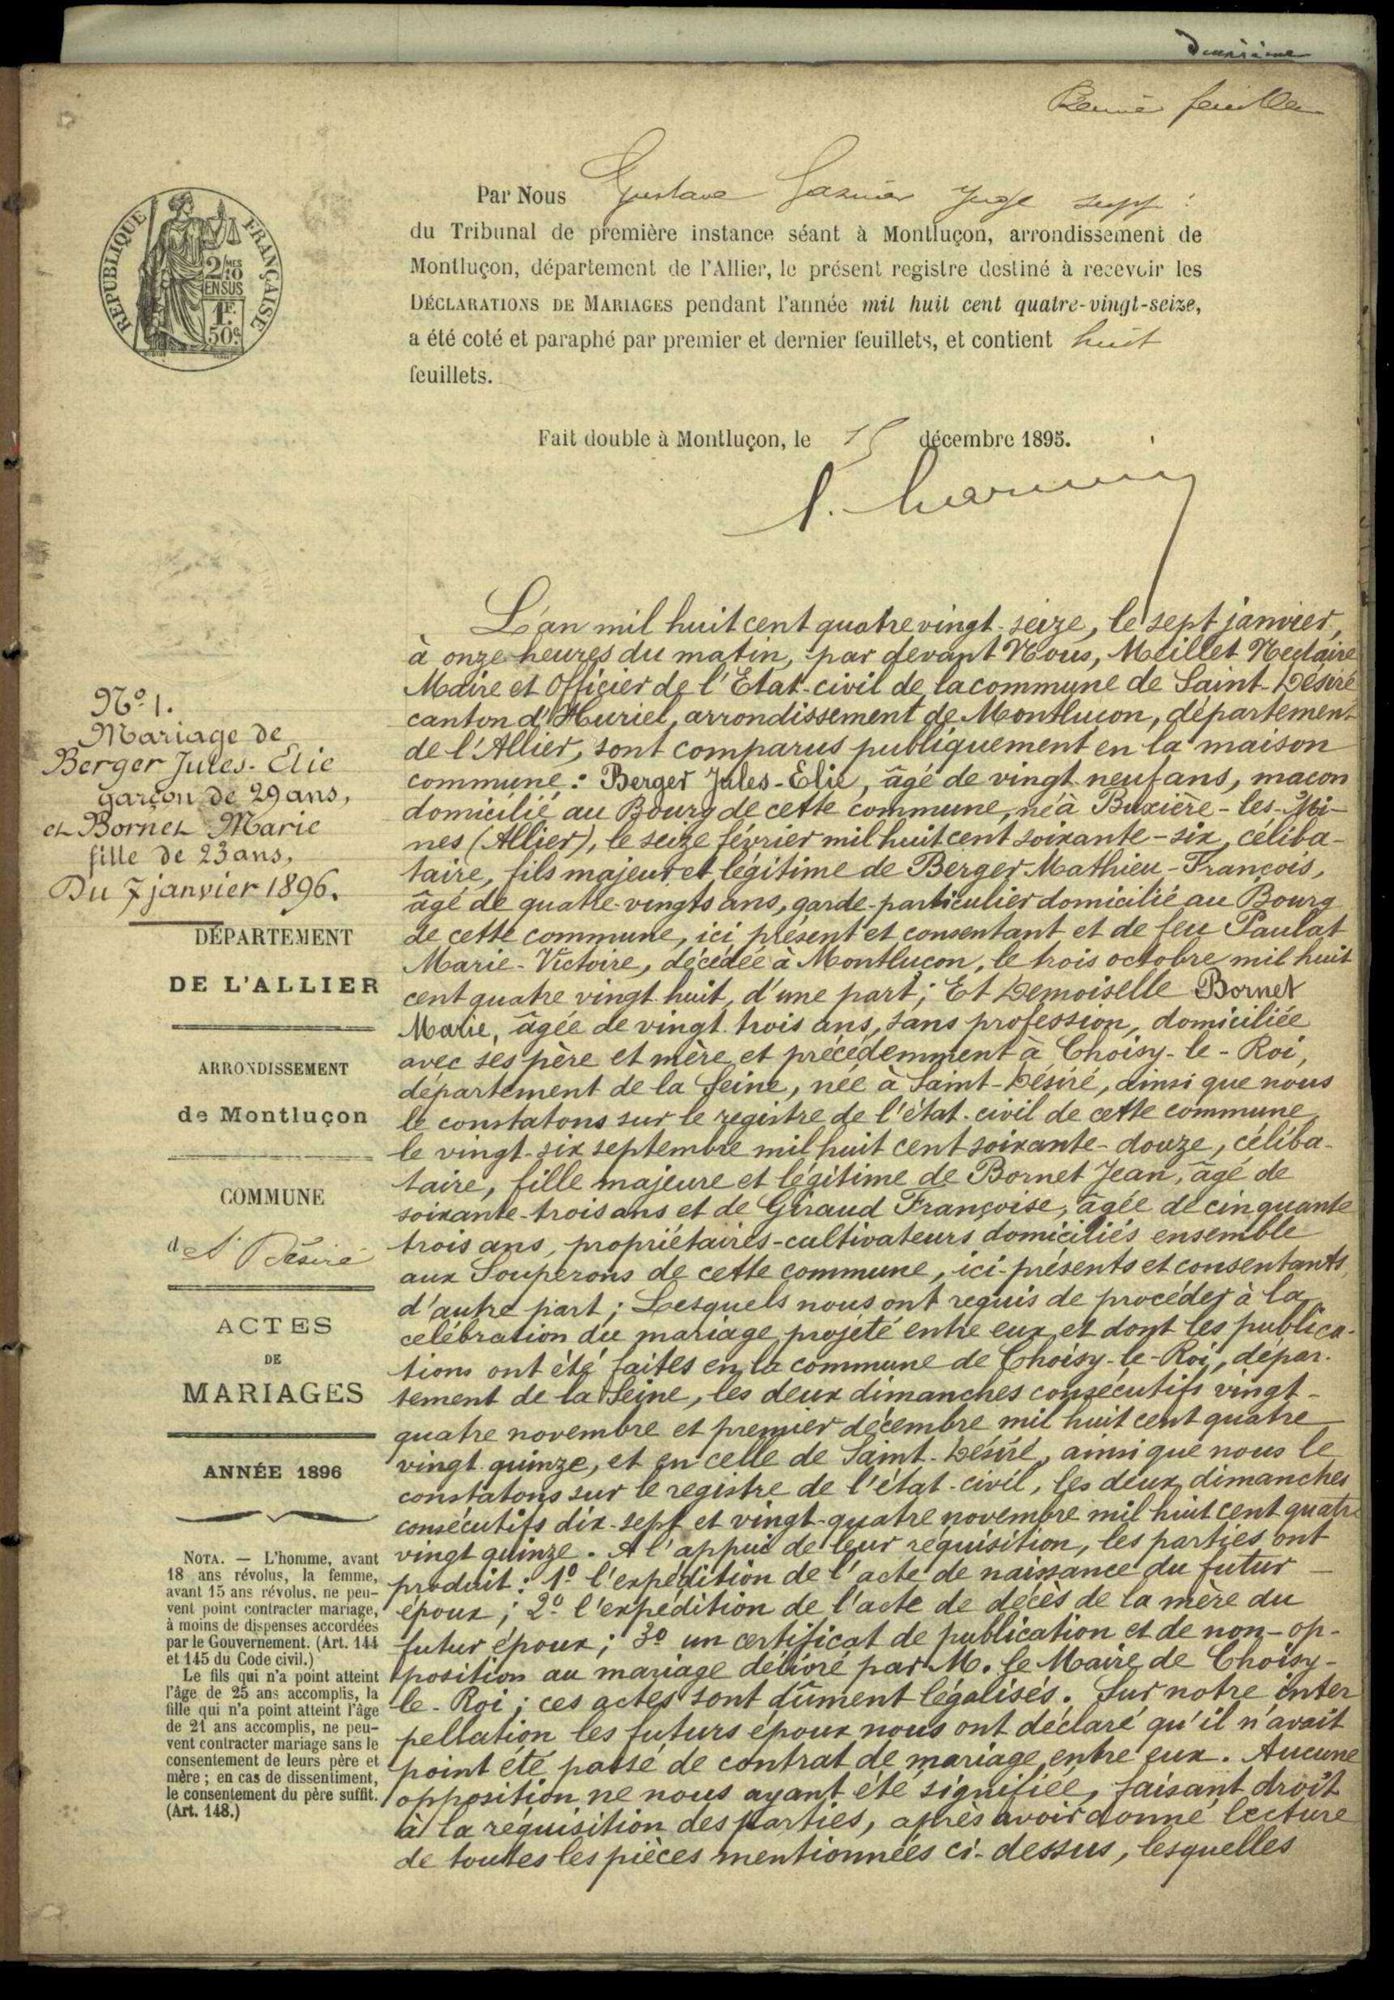 deuxième
feuille
Par Nous Gustave juge supp :
du Tribunal de première instance séant à Montluçon, arrondissement de
Montluçon, département de l'Allier, le présent registre destiné à recevoir les
DÉCLARATIONS DE MARIAGES pendant l'année mil huit cent quatre-vingt-seize,
a été coté et paraphé par premier et dernier feuillets, et contient huit
feuillets.
Fait double à Montluçon, le 15 décembre 1895.
RÉPUBLIQUE FRANÇAISE
2/10 MES
EN SUS
1F.
50c.
N.º 1.
Mariage de
Berger Jules-Elie
garçon de 29 ans,
et Bornet Marie
fille de 23 ans,
Du 7 janvier 1896.
DÉPARTEMENT
DE L'ALLIER
ARRONDISSEMENT
de Montluçon
COMMUNE
d St Désiré
ACTES
DE
MARIAGES
ANNÉE 1896
NOTA. — L'homme, avant
18 ans révolus, la femme,
avant 15 ans révolus, ne peu-
vent point contracter mariage,
à moins de dispenses accordées
par le Gouvernement. (Art. 144
et 145 du Code civil.)
Le fils qui n'a point atteint
l'âge de 25 ans accomplis, la
fille qui n'a point atteint l'âge
de 21 ans accomplis, ne peu-
vent contracter mariage sans le
consentement de leurs père et
mère ; en cas de dissentiment,
le consentement du père suffit.
(Art. 148.)
L'an mil huit cent quatre vingt-seize, le sept janvier,
à onze heures du matin, par devant Nous, Meillet Nectaire
Maire et Officier de l'Etat-civil de la commune de Saint-Désiré
canton d'Huriel, arrondissement de Montluçon, département
de l'Allier, sont comparus publiquement en la maison
commune : Berger Jules-Elie, âgé de vingt-neuf ans, maçon
domicilié au Bourg de cette commune, né à Buxière-les-Mi-
nes (Allier), le seize février mil huit cent soixante-six, céliba-
taire, fils majeur et légitime de Berger Mathieu-François,
âgé de quatre-vingts ans, garde-particulier domicilié au Bourg
de cette commune, ici présent et consentant et de feu Paulat
Marie-Victoire, décédée à Montluçon, le trois octobre mil huit
cent quatre vingt-huit, d'une part ; Et Demoiselle Bornet
Marie, âgée de vingt-trois ans, sans profession, domiciliée
avec ses père et mère et précédemment à Choisy-le-Roi,
département de la Seine, née à Saint-Désiré, ainsi que nous
le constatons sur le registre de l'état-civil de cette commune,
le vingt-six septembre mil huit cent soixante-douze, céliba-
taire, fille majeure et légitime de Bornet Jean, âgé de
soixante-trois ans et de Giraud Françoise, âgée de cinquante
trois ans, propriétaires-cultivateurs domiciliés ensemble
aux Souperons de cette commune, ici présents et consentants,
d'autre part ; Lesquels nous ont requis de procéder à la
célébration du mariage projeté entre eux et dont les publica-
tions ont été faites en la commune de Choisy-le-Roi, dépar-
tement de la Seine, les deux dimanches consécutifs vingt-
quatre novembre et premier décembre mil huit cent quatre
vingt-quinze, et en celle de Saint-Désiré, ainsi que nous le
constatons sur le registre de l'état-civil, les deux dimanches
consécutifs dix-sept et vingt-quatre novembre mil huit cent quatre
vingt quinze. A l'appui de leur réquisition, les parties ont
produit : 1º l'expédition de l'acte de naissance du futur
époux ; 2º l'expédition de l'acte de décès de la mère du
futur époux ; 3º un certificat de publication et de non-op-
position au mariage délivré par M. le Maire de Choisy-
le-Roi ; ces actes sont dûment légalisés. Sur notre inter
pellation les futurs époux nous ont déclaré qu'il n'avait
point été passé de contrat de mariage entre eux. Aucune
opposition ne nous ayant été signifiée, faisant droit
à la réquisition des parties, après avoir donné lecture
de toutes les pièces mentionnées ci-dessus, lesquelles